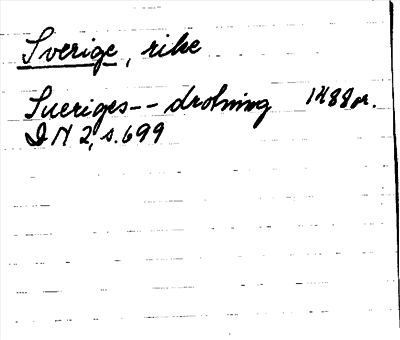 Sverige, rike
Sueriges -- drotning 1488 or.
D N 2, s. 699